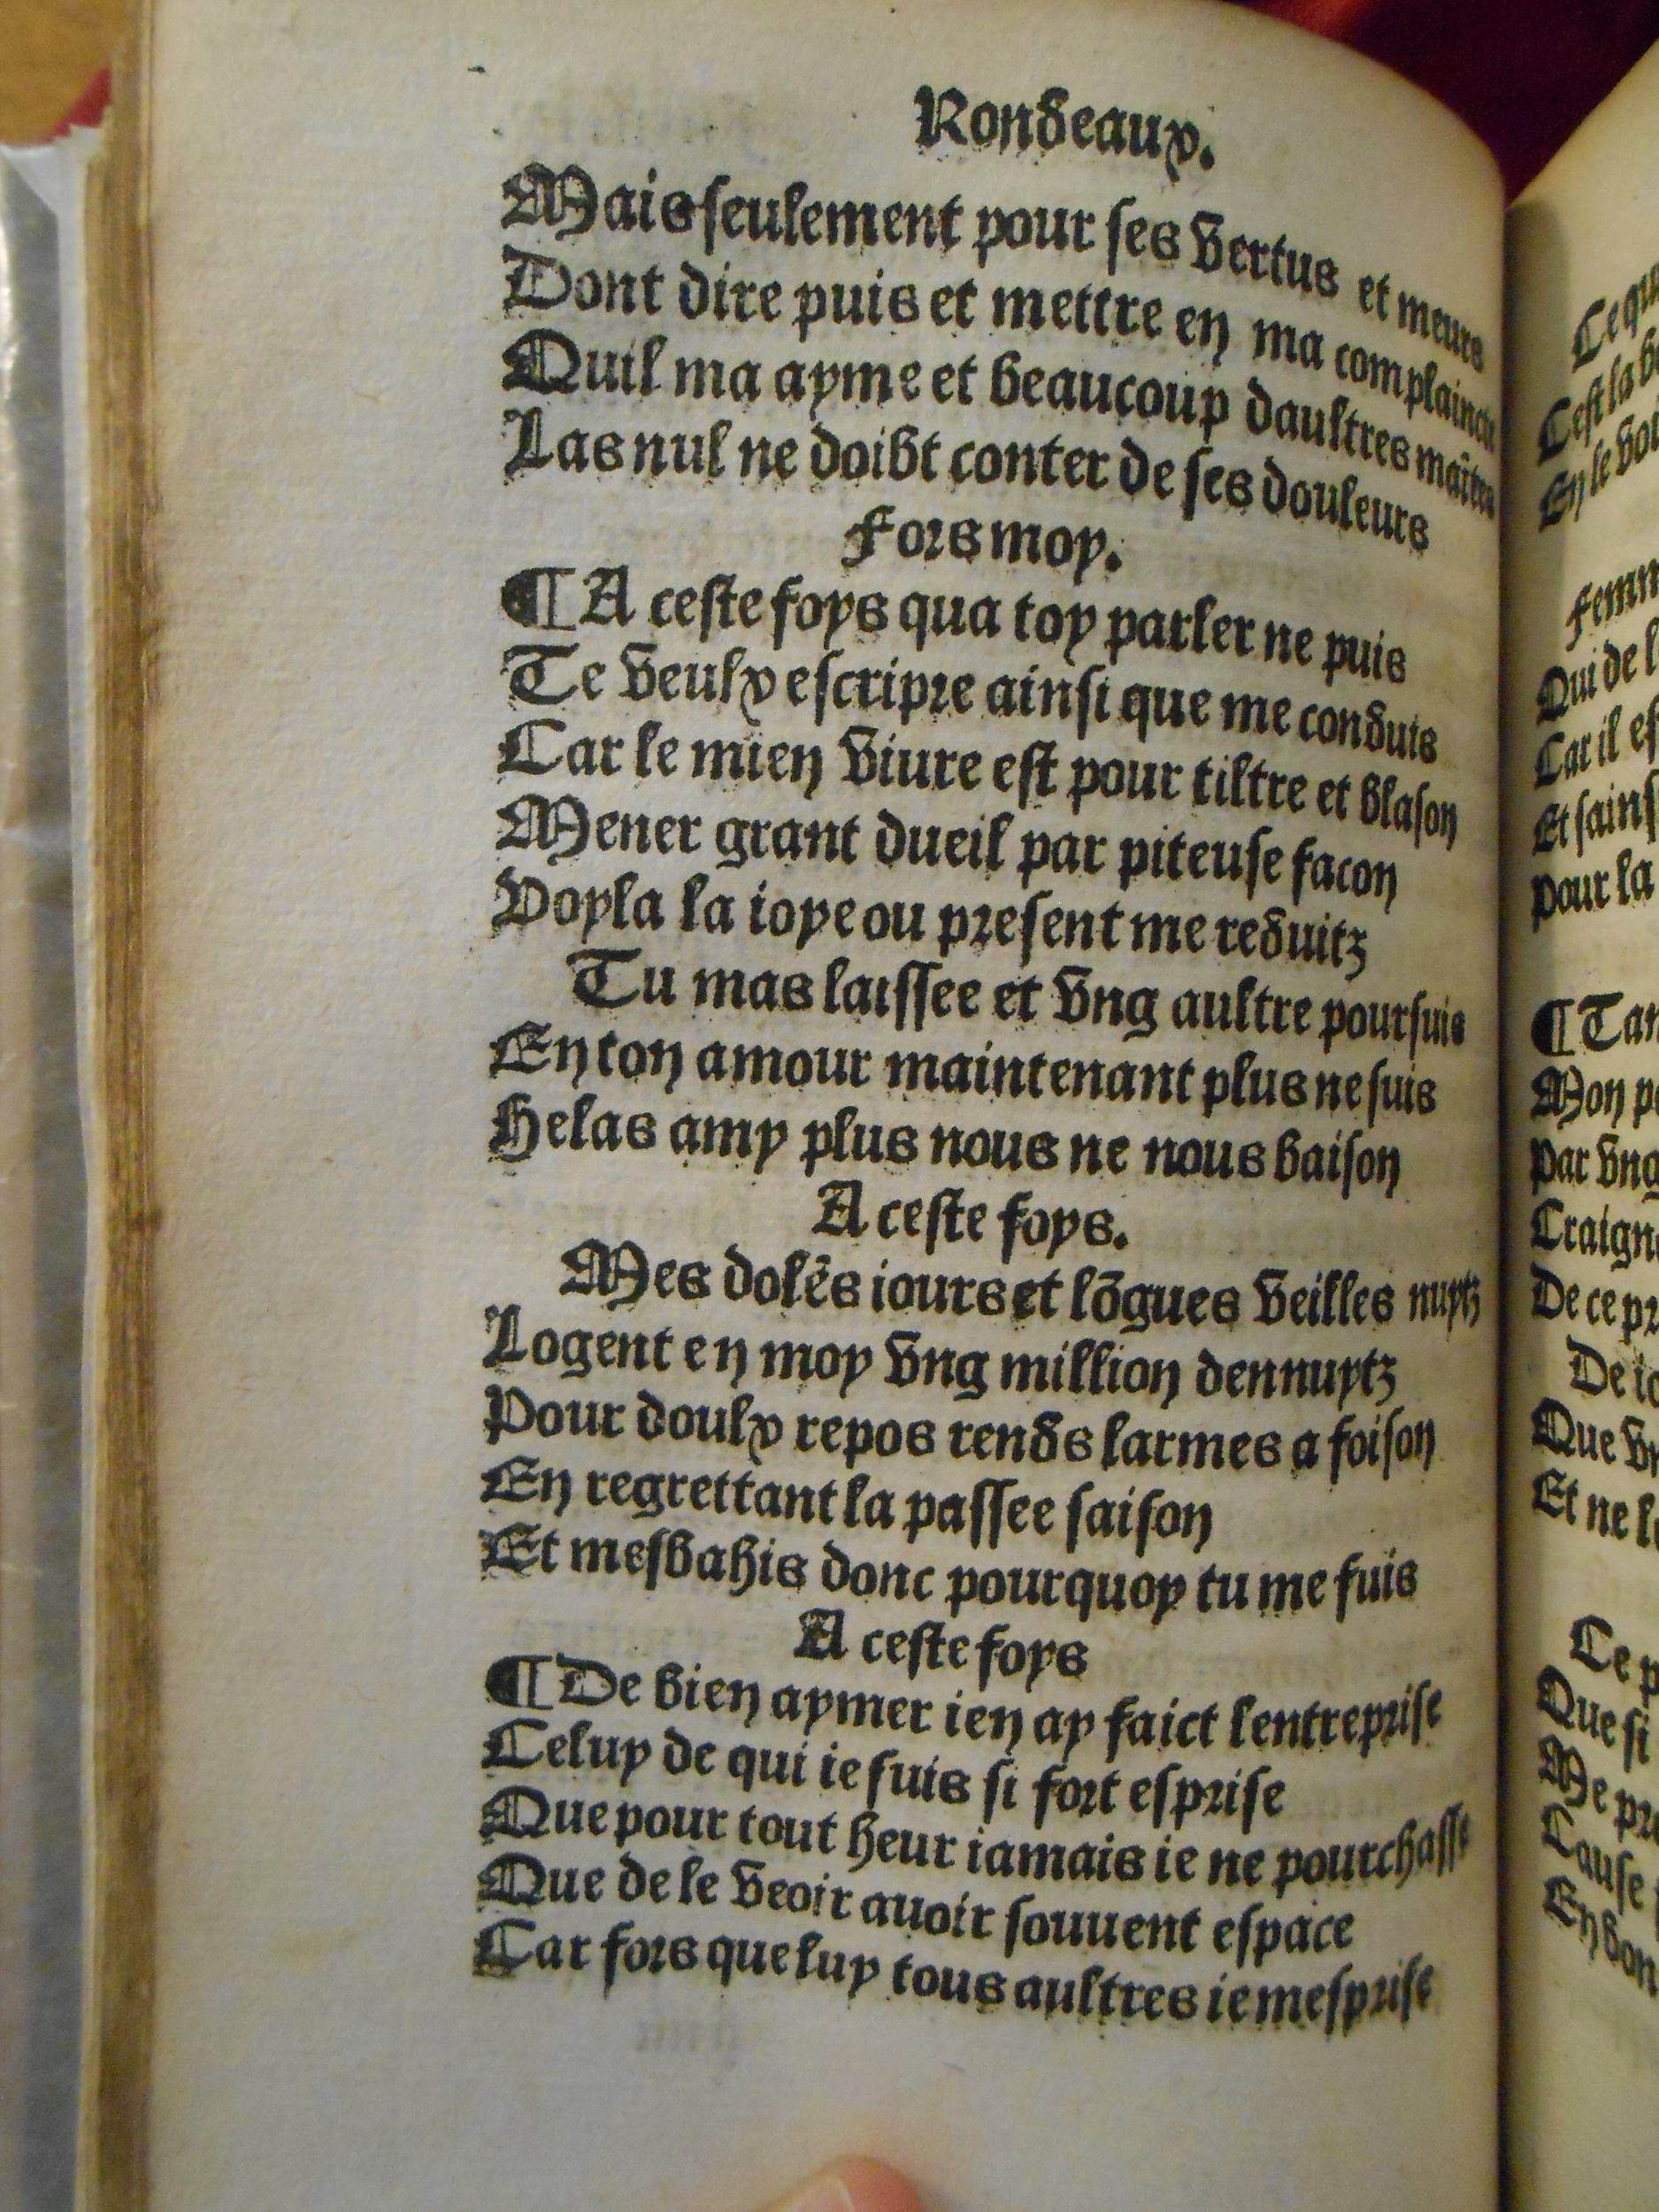 Rondeaux.
Mais seulement pour ses vertus et meurs
Dont dire puis et mettre en ma complaincte
Quil ma ayme et beaucoup daultres maītes
Las nul ne doibt conter de ses douleurs
Fors moy.
¶ A ceste foys qua toy parler ne puis
Te veulx escripre ainsi que me conduis
Car le mien viure est pour tiltre et blason
Mener grant dueil par piteuse facon
Voyla la ioye ou present me reduitz
Tu mas laissee et vng aultre poursuis
En ton amour maintenant plus ne suis
Helas amy plus nous ne nous baison
A ceste foys.
Mes dolēs iours et lōgues veilles nuytz
Logent en moy vng million dennuytz
Pour doulx repos rends larmes a foison
En regrettant la passee saison
Et mesbahis donc pourquoy tu me fuis
A ceste foys
¶ De bien aymer ien ay faict lentreprise
Celuy de qui ie suis si fort esprise
Que pour tout heur iamais ie ne pourchasse
Que de le veoir auoir souuent espace
Car fors que luy tous aultres ie mesprise
Ce
Cest la
En le
Qui de
Car il
Et
Pour la
¶
Mon
Par vng
De ce
De
Que
Et ne
Ce
Que si
Me
Cause
En